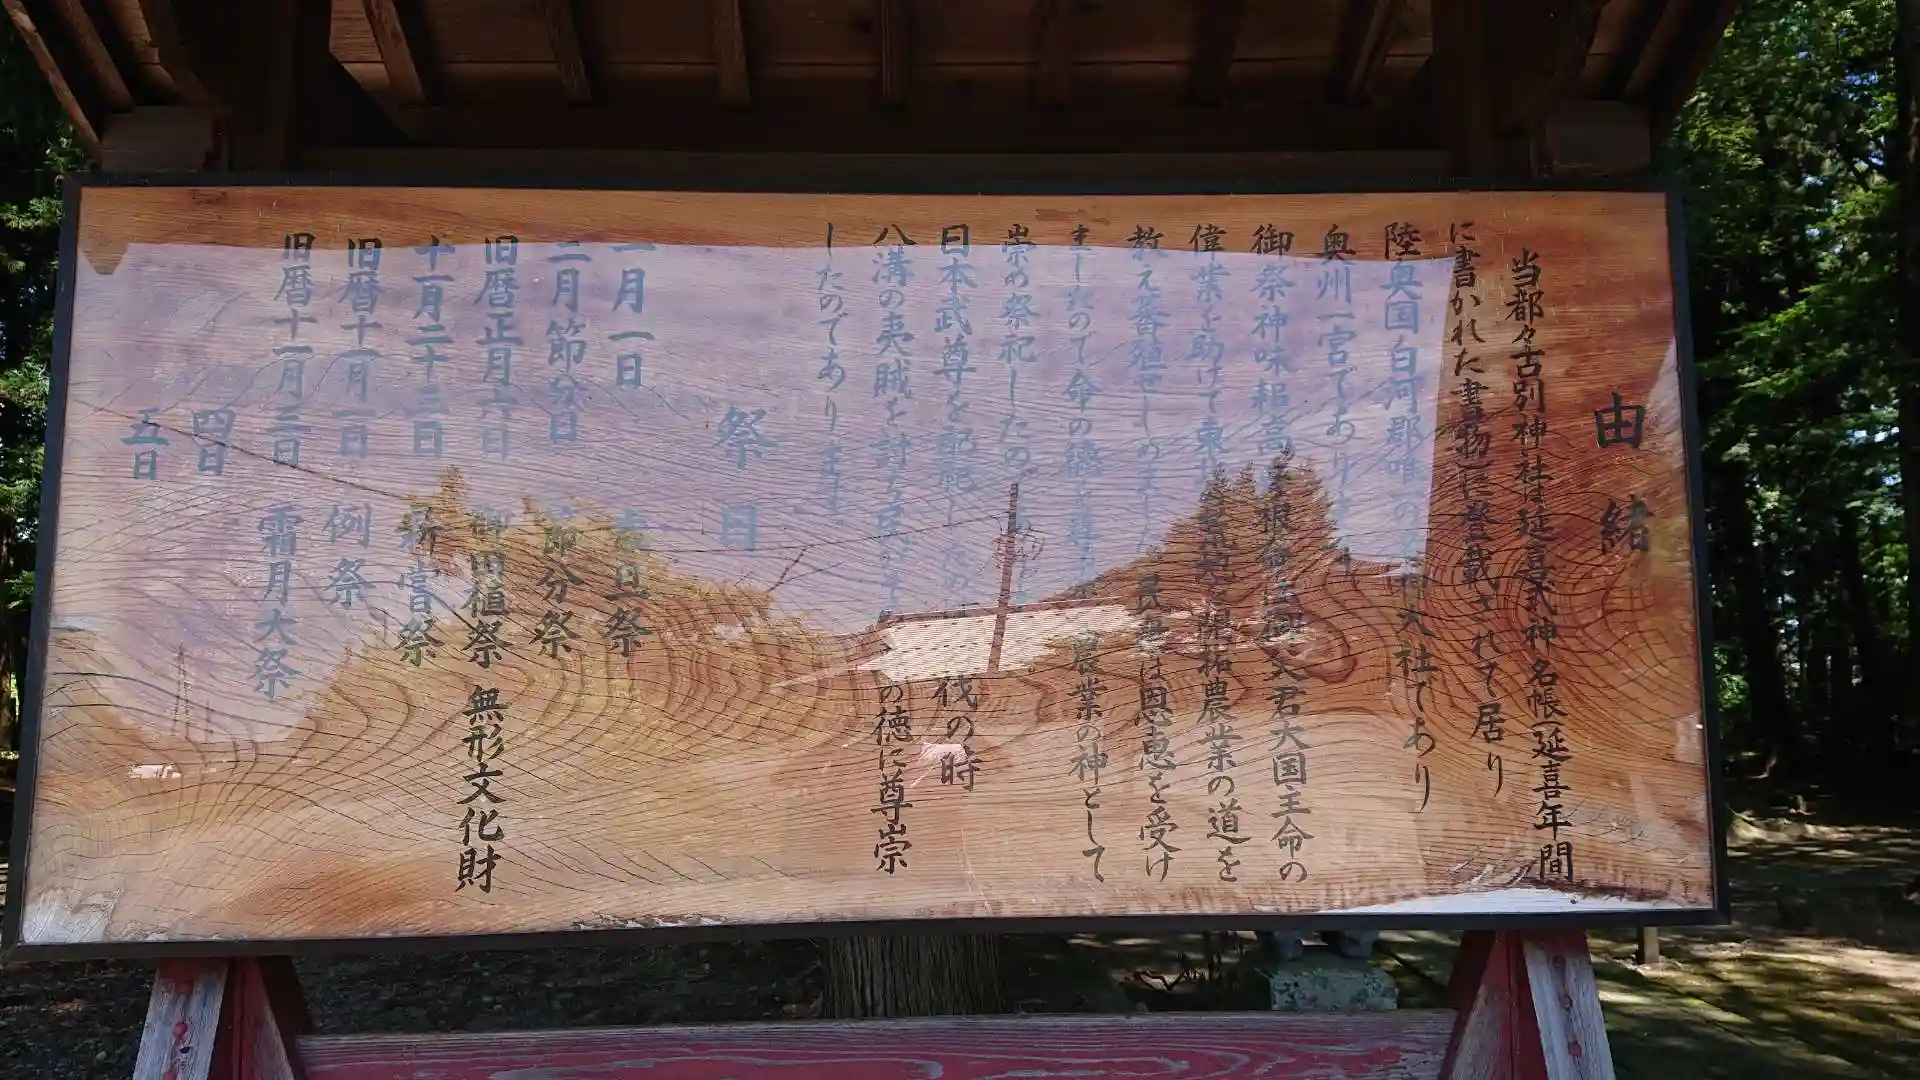 由緒
当都々古別神社は延喜式神名帳延喜年間
に書かれた書物に登載されて居り
陸奥国白河郡唯一の 大社であり
奥州一宮であります
御祭神味耜高彦根命は御父君大国主命の
偉業を助けて東 を開拓農業の道を
教え蕃殖せしめました 民 は恩恵を受け
ましたので命の徳を尊び 農業の神として
崇め祭祀したので
日本武尊を配祀したのは 伐の時
八溝の夷賊を討ち の徳に尊崇
したのであります
祭日
一月一日 歳旦祭
二月節分日 節分祭
旧暦正月六日 御田植祭 無形文化財
十一月二十三日 新嘗祭
旧暦十一月一日 例祭
旧暦十一月三日 霜月大祭
四日
五日